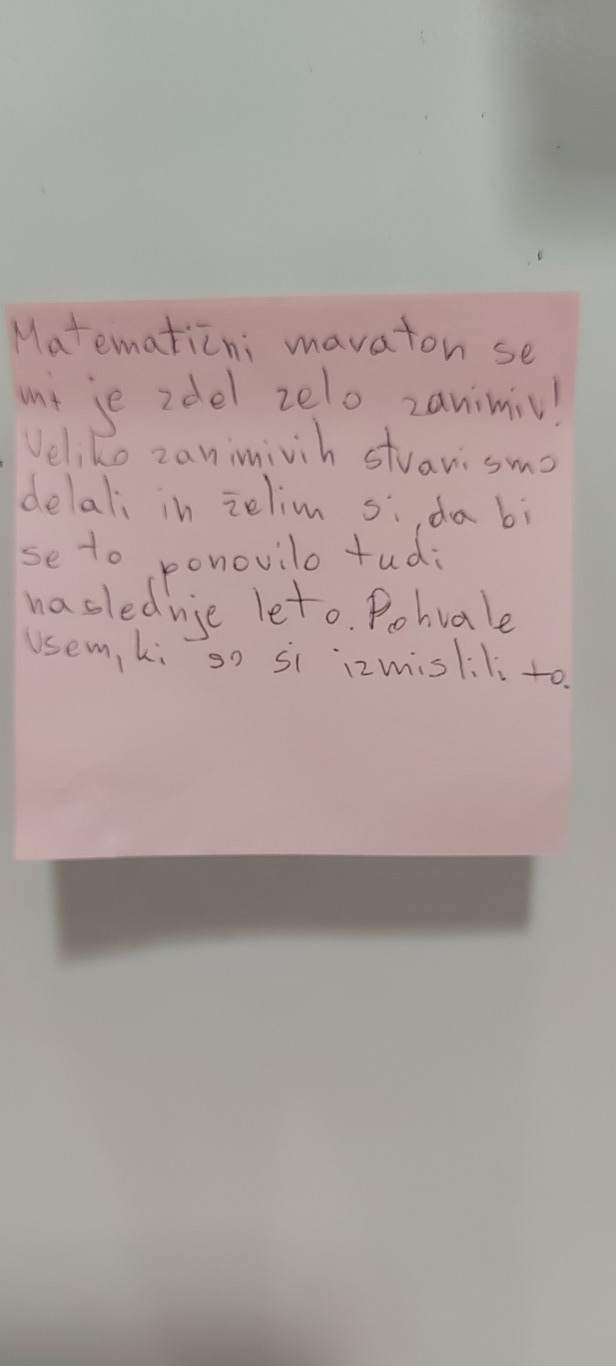 Matematični maraton se
mi je zdel zelo zanimiv!
Veliko zanimivih stvari smo
delali in želim si, da bi
se to ponovilo tudi
naslednje leto. Pohvale
vsem, ki so si izmislili to.